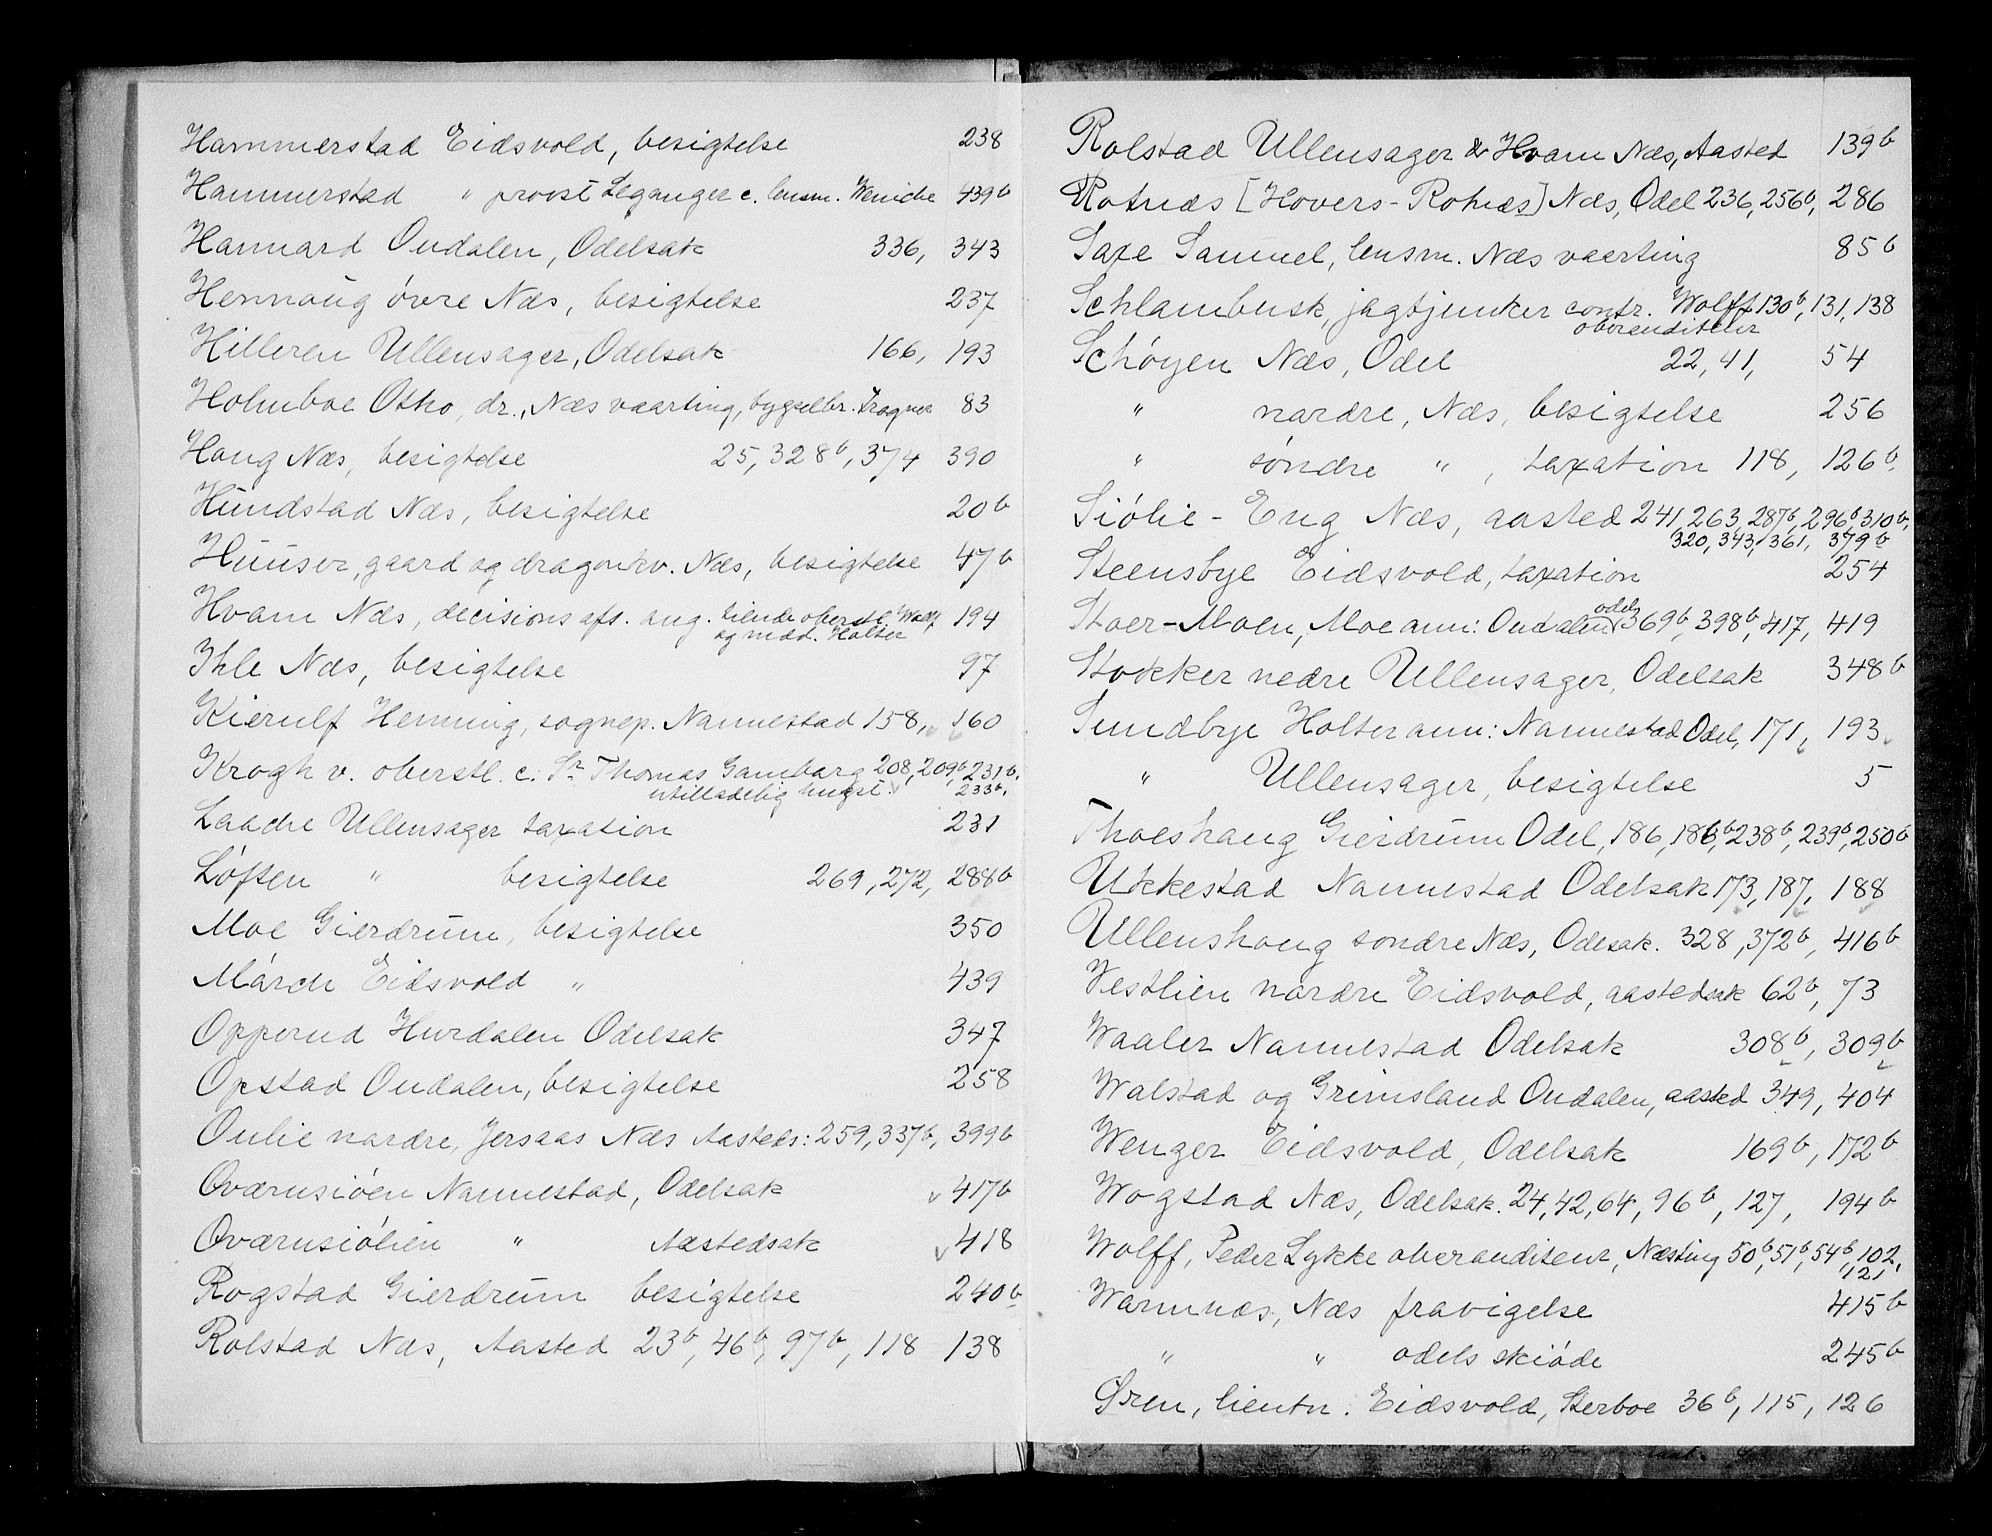 Hammerstad Eidsvold, besigtelse 238
Hammerstad " provst Leganger c. lensm. Weniche 439b
Hannard Oudalen, Odelsak 336, 343
Hennoug övre Næs, besigtelse 237
Hilleren Ullensager, Odelsak 166, 193
Holmboe Otho, dr., Næs vaarting, bygselbr. Fragnes 83
Houg Næs, besigtelse 25, 328b, 374 390
Hundstad Næs, besigtelse 20b
Huuser, gaard og dragonkv. Næs, besigtelse 47b
Hvam Næs, decisions afs. ang. tiende oberstl. Wolff 194
og mdd. Holter
Ihle Næs, besigtelse 97
Kierulf Henning, sognep. Nannestad 158, 160
Krogh v. oberstl. c. Sr Thomas Gamborg 208, 209b, 231b,
utilladelig hugst. 233b.
Laache Ullensager taxation 231
Løften " besigtelse 269, 272, 288b
Moe Gierdrum, besigtelse 350
March Eidsvold " 439
Opperud Hurdalen Odelsak 347
Opstad Oudalen, besigtelse 258
Oulie nordre, Jersaas Næs Aasteds: 259, 337b, 399b
Oværnsiöen Nannestad, Odelsak v 417b
Oværnsiölien " Aastedsak v 418
Rogstad Gierdrum besigtelse 240b
Rolstad Næs, Aasted 23b, 46b, 97b, 118 138
Rolstad Ullensager & Hvam Næs, Aasted 139b
Rotnæs [Hovers-Rotnæs] Næs, Odel 236, 256b, 286
Saxe Samuel, lensm. Næs vaarting 85b
Schlambusk, jagtjunker contr. Wolff 130b, 131, 138
oberauditeur
Schöyen Næs, Odel 22, 41, 54
" nordre, Næs, besigtelse 256
" söndre " , taxation 118, 126b
Siölie - Eng Næs, aasted 241, 263, 287b, 296b, 310b,
320, 343, 361, 379b
Steensbye Eidsvold, taxation 254
Stoer-Moen, Moe ann: Oudalen odels 369b, 398b, 417, 419
Stokker nedre Ullensager, Odelsak 348b
Sundbye Holter ann: Nannestad Odel, 171, 193
" Ullensager, besigtelse 5
Thoeshaug Gierdrum Odel, 186, 186b, 238b, 239b, 250b
Ukkestad Nannestad Odelsak 173, 187, 188
Ullenshoug söndre Næs, Odelsak. 328, 372b, 416b
Vestlien nordre Eidsvold, aastedsak 62b, 73
Waaler Nannestad Odelsak 308b, 309b
Walstad og Grimsland Oudalen, aasted 349, 404
Wenger Eidsvold, Odelsak 169b, 172b
Wogstad Næs, Odelsak. 24, 42, 64, 96b, 127, 194b
Wolff, Peder Lykke oberauditeur, Næsting 50b, 51b, 54b, 102,
121
Warmnæs, Næs fravigelse 415b
" " odels skiöde 245b
Øren, lieutn. Eidsvold, Sterboe 36b, 115, 126